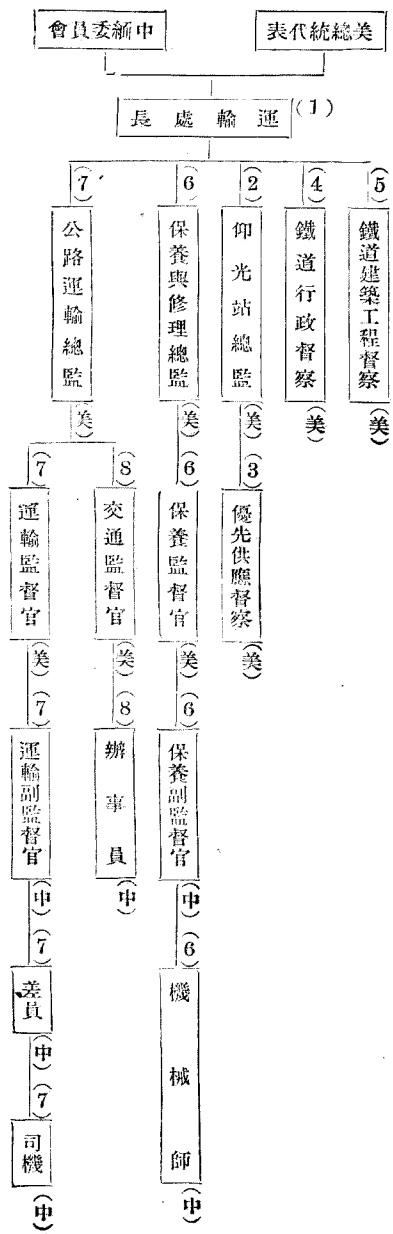 美總統代表
中緬委員會
運輸處長
(1)
(5)
鐵道建築工程督察
(美)
(4)
鐵道行政督察
(美)
(2)
仰光站總監
(美)
(3)
優先供應督察
(美)
(6)
保養與修理總監
(美)
(6)
保養監督官
(美)
(6)
保養副監督官
(中)
(6)
機械師
(中)
(7)
公路運輸總監
(美)
(8)
交通監督官
(美)
(8)
辦事員
(中)
(7)
運輸監督官
(美)
(7)
運輸副監督官
(中)
(7)
差員
(中)
(7)
司機
(中)